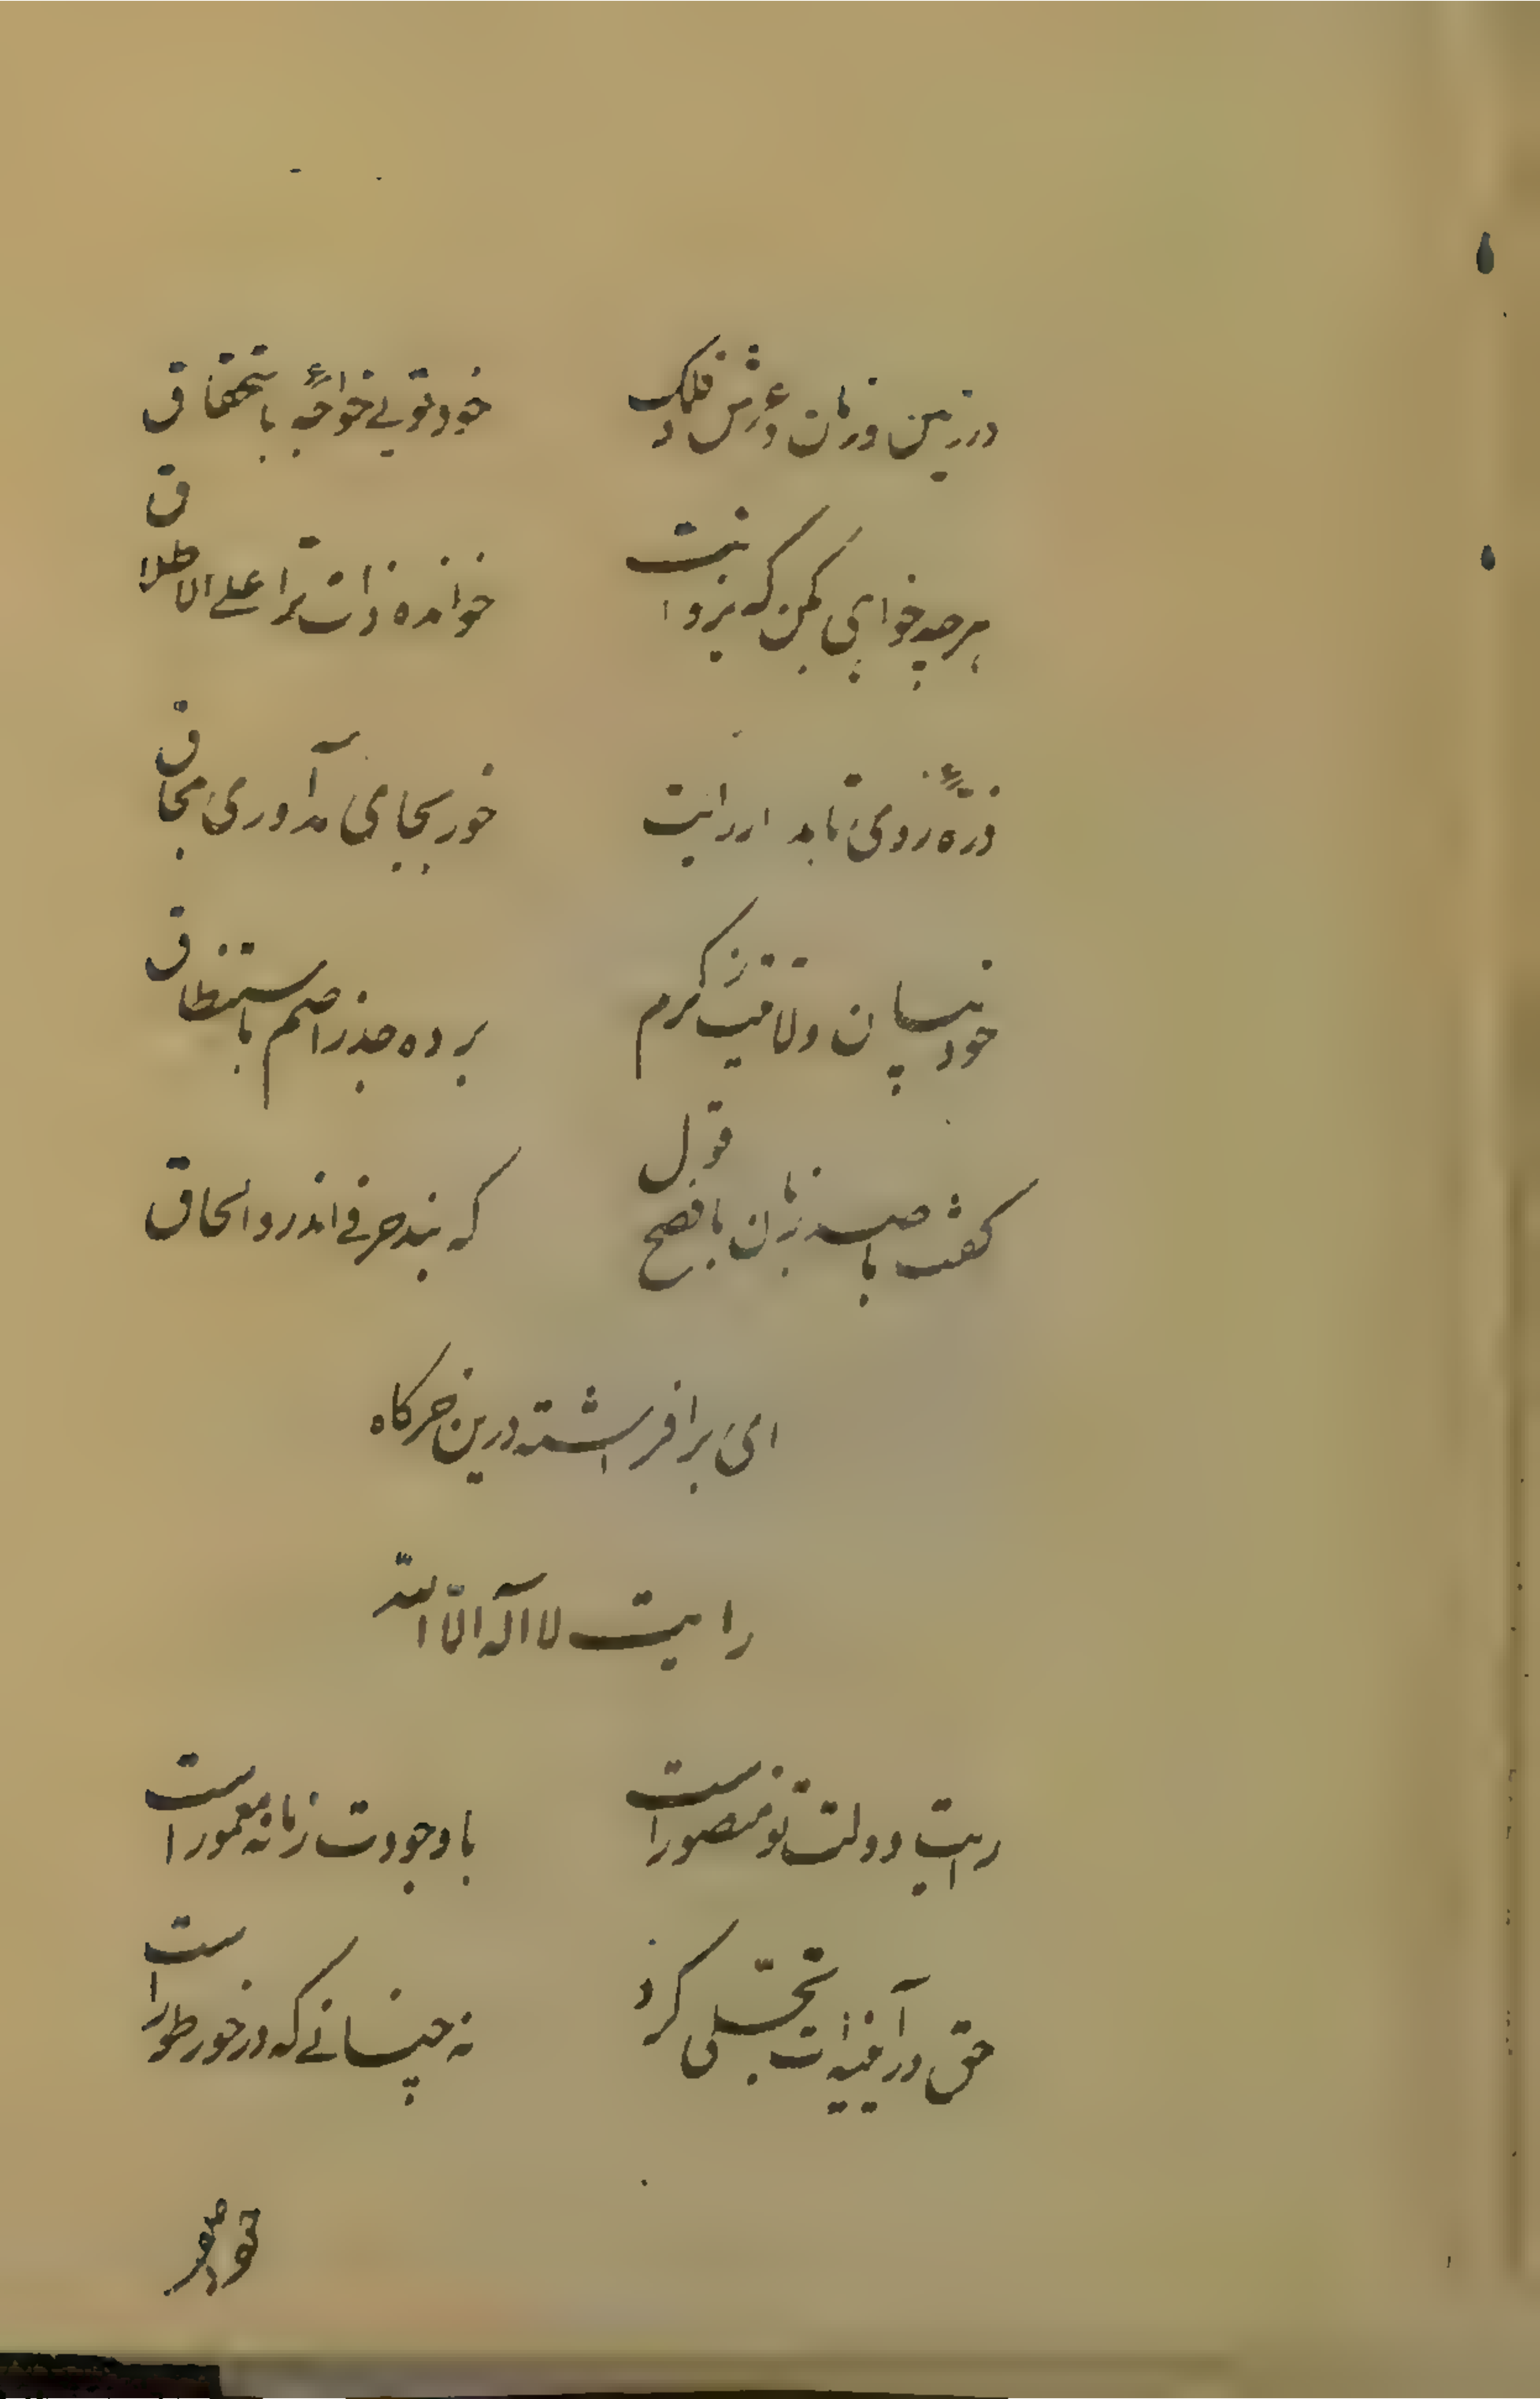 در زمین و زمان و عرش و فلک خود تویے خواجهٔ باستحقاق
هرچه خواهی بکن که نزد انیت خوانده ذات ترا علے الاطلاق
ذرهٔ روی تابد ار رایت خور بجا می مد آوری بمحاق
خود نسپان ولاقیت ز کرم برده جذر اصم باستنطاق
گفت با صد زبان بافصح قول که بند حرفے اندر و الحاق
ای برافراشته درین خرگاه
رایت لا اله الا الله
رایت دولت تو منصور است با وجودت زمانه معمور است
حق در آئینه ات تجلی کرد نه چنانے که در خور طور است